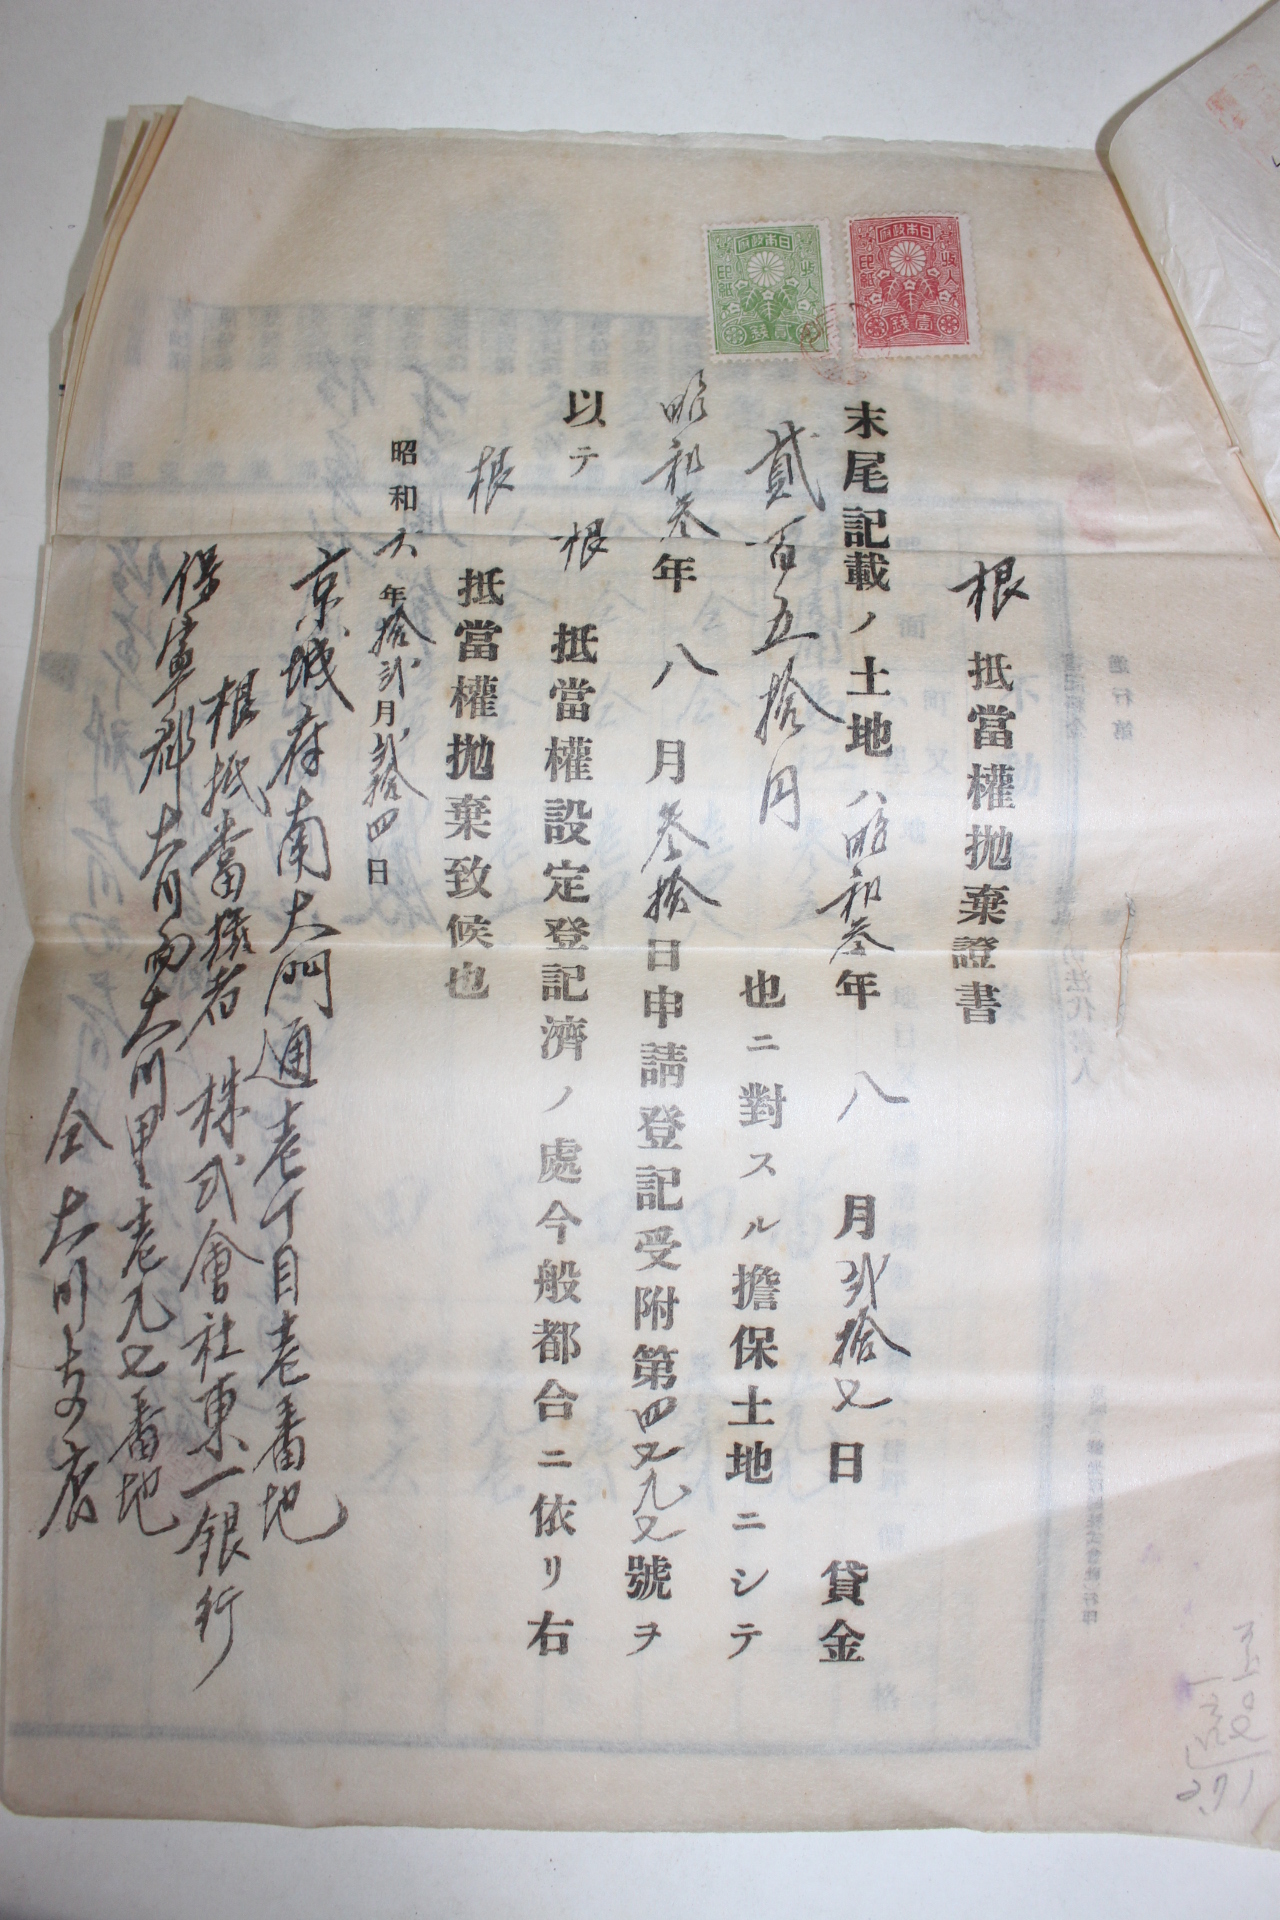 日本政府
收入
印紙
壹錢
日本政府
收入
印紙
貳錢
根抵當權抛棄證書
末尾記載ノ土地ハ昭和叁年八月弐拾七日貸金
貳百五拾円也ニ對スル擔保土地ニシテ
昭和叁年八月叁拾日申請登記受附第四又九又號ヲ
以テ根抵當權設定登記濟ノ處今般都合ニ依リ右
根抵當權抛棄致候也
昭和六年拾弐月弐拾四日
京城府南大門通壱丁目壱番地
根抵當権者 株式會社東一銀行
保寧郡大川面大川里壱九七番地
仝大川支店